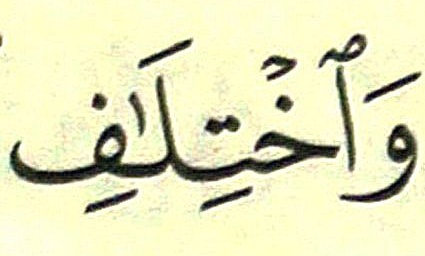 وَٱخۡتِلَٰفِ